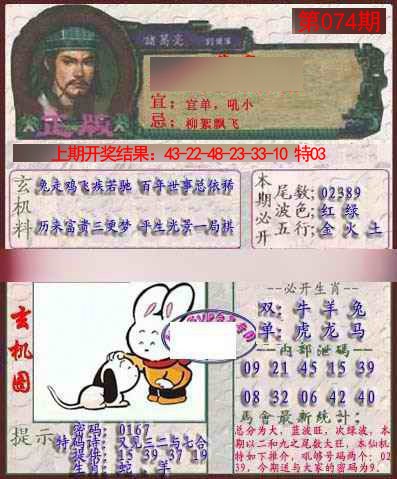 第074期
諸葛亮
正版
宜：宜单，吼小
忌：柳絮飘飞
上期开奖结果：43-22-48-23-33-10 特03
玄机料
兔走鸡飞疾若驰 百年世事总依稀
历来富贵三更梦 平生光景一局棋
本期必开
尾数：02389
波色：红 绿
五行：金 火 土
玄机图
--必开生肖--
双：牛 羊 兔
单：虎 龙 马
--内部泄码--
09 21 45 15 39
08 32 06 42 40
馬會最新统計：
总分为大，蓝波旺，次绿波，本
期以二和九之尾数大旺，本仙机
特如下推介，吼够号码两个：02
39，今期送与大家的密码为9。
提示
密码：0167
特码诗：又见三二与七合
特提：15 39 37 19
生肖：蛇、羊